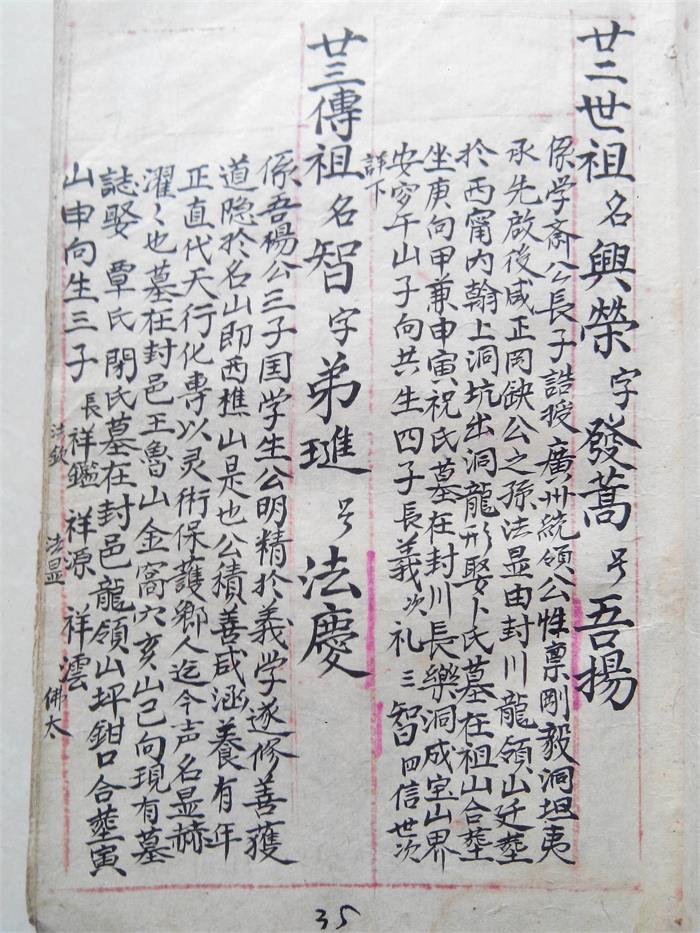 廿二世祖名興榮字發蒿号吾揚
係学斋公長子誥授廣州統領公性禀剛毅洞坦夷
承先啟後咸正罔缺公之孫法显由封川龍領山廷塟
於西甯内翰上洞坑出洞龍形娶卜氏墓在祖山合塟
坐庚向甲兼申寅祝氏墓在封川長樂洞成宝山界
安穸午山子向共生四子長義次礼三智四信世次
詳下
廿三傳祖名智字弟琟号法慶
係吾楊公三子国学生公明精於義学遂修善獲
道隐於名山即西樵山是也公積善咸涵養有年
正直代天行化專以灵術保護鄉人迄今声名显赫
濯〻也墓在封邑王魯山金窩穴亥山己向現有墓
誌娶覃氏閉氏墓在封邑龍領山坪鉗口合塟寅
山申向生三子長祥鑑祥源祥澐
法欽 法显 佛太
35